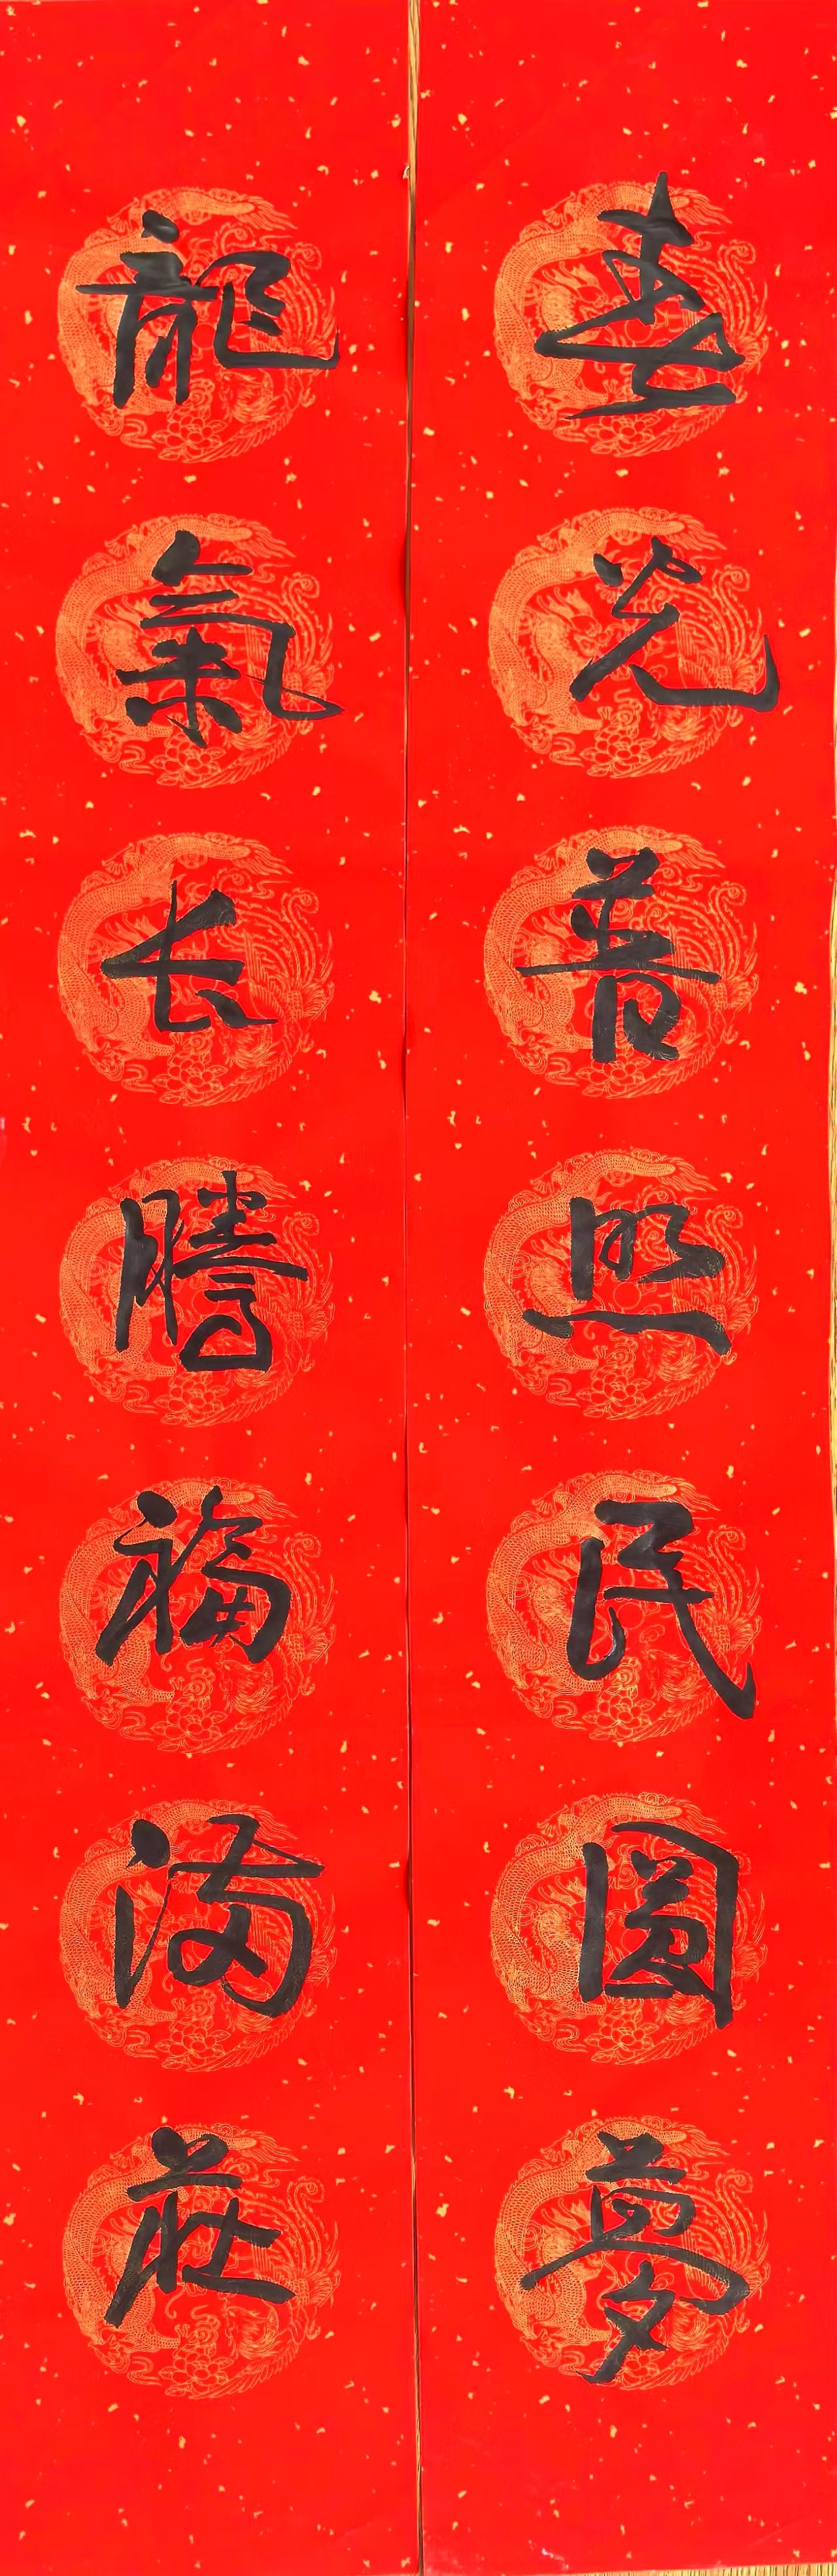 春光普照民圓夢
龍氣长騰福满莊